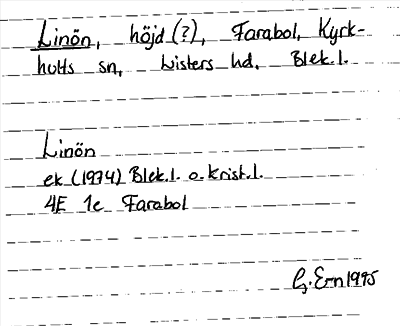 Linön, höjd (?), Farabol, Kyrk-
hults sn, Listers hd. Blek.l.
Linön
ek (1974) Blek.l. o. Krist.l.
4E 1e Farabol
G. Ern 1995